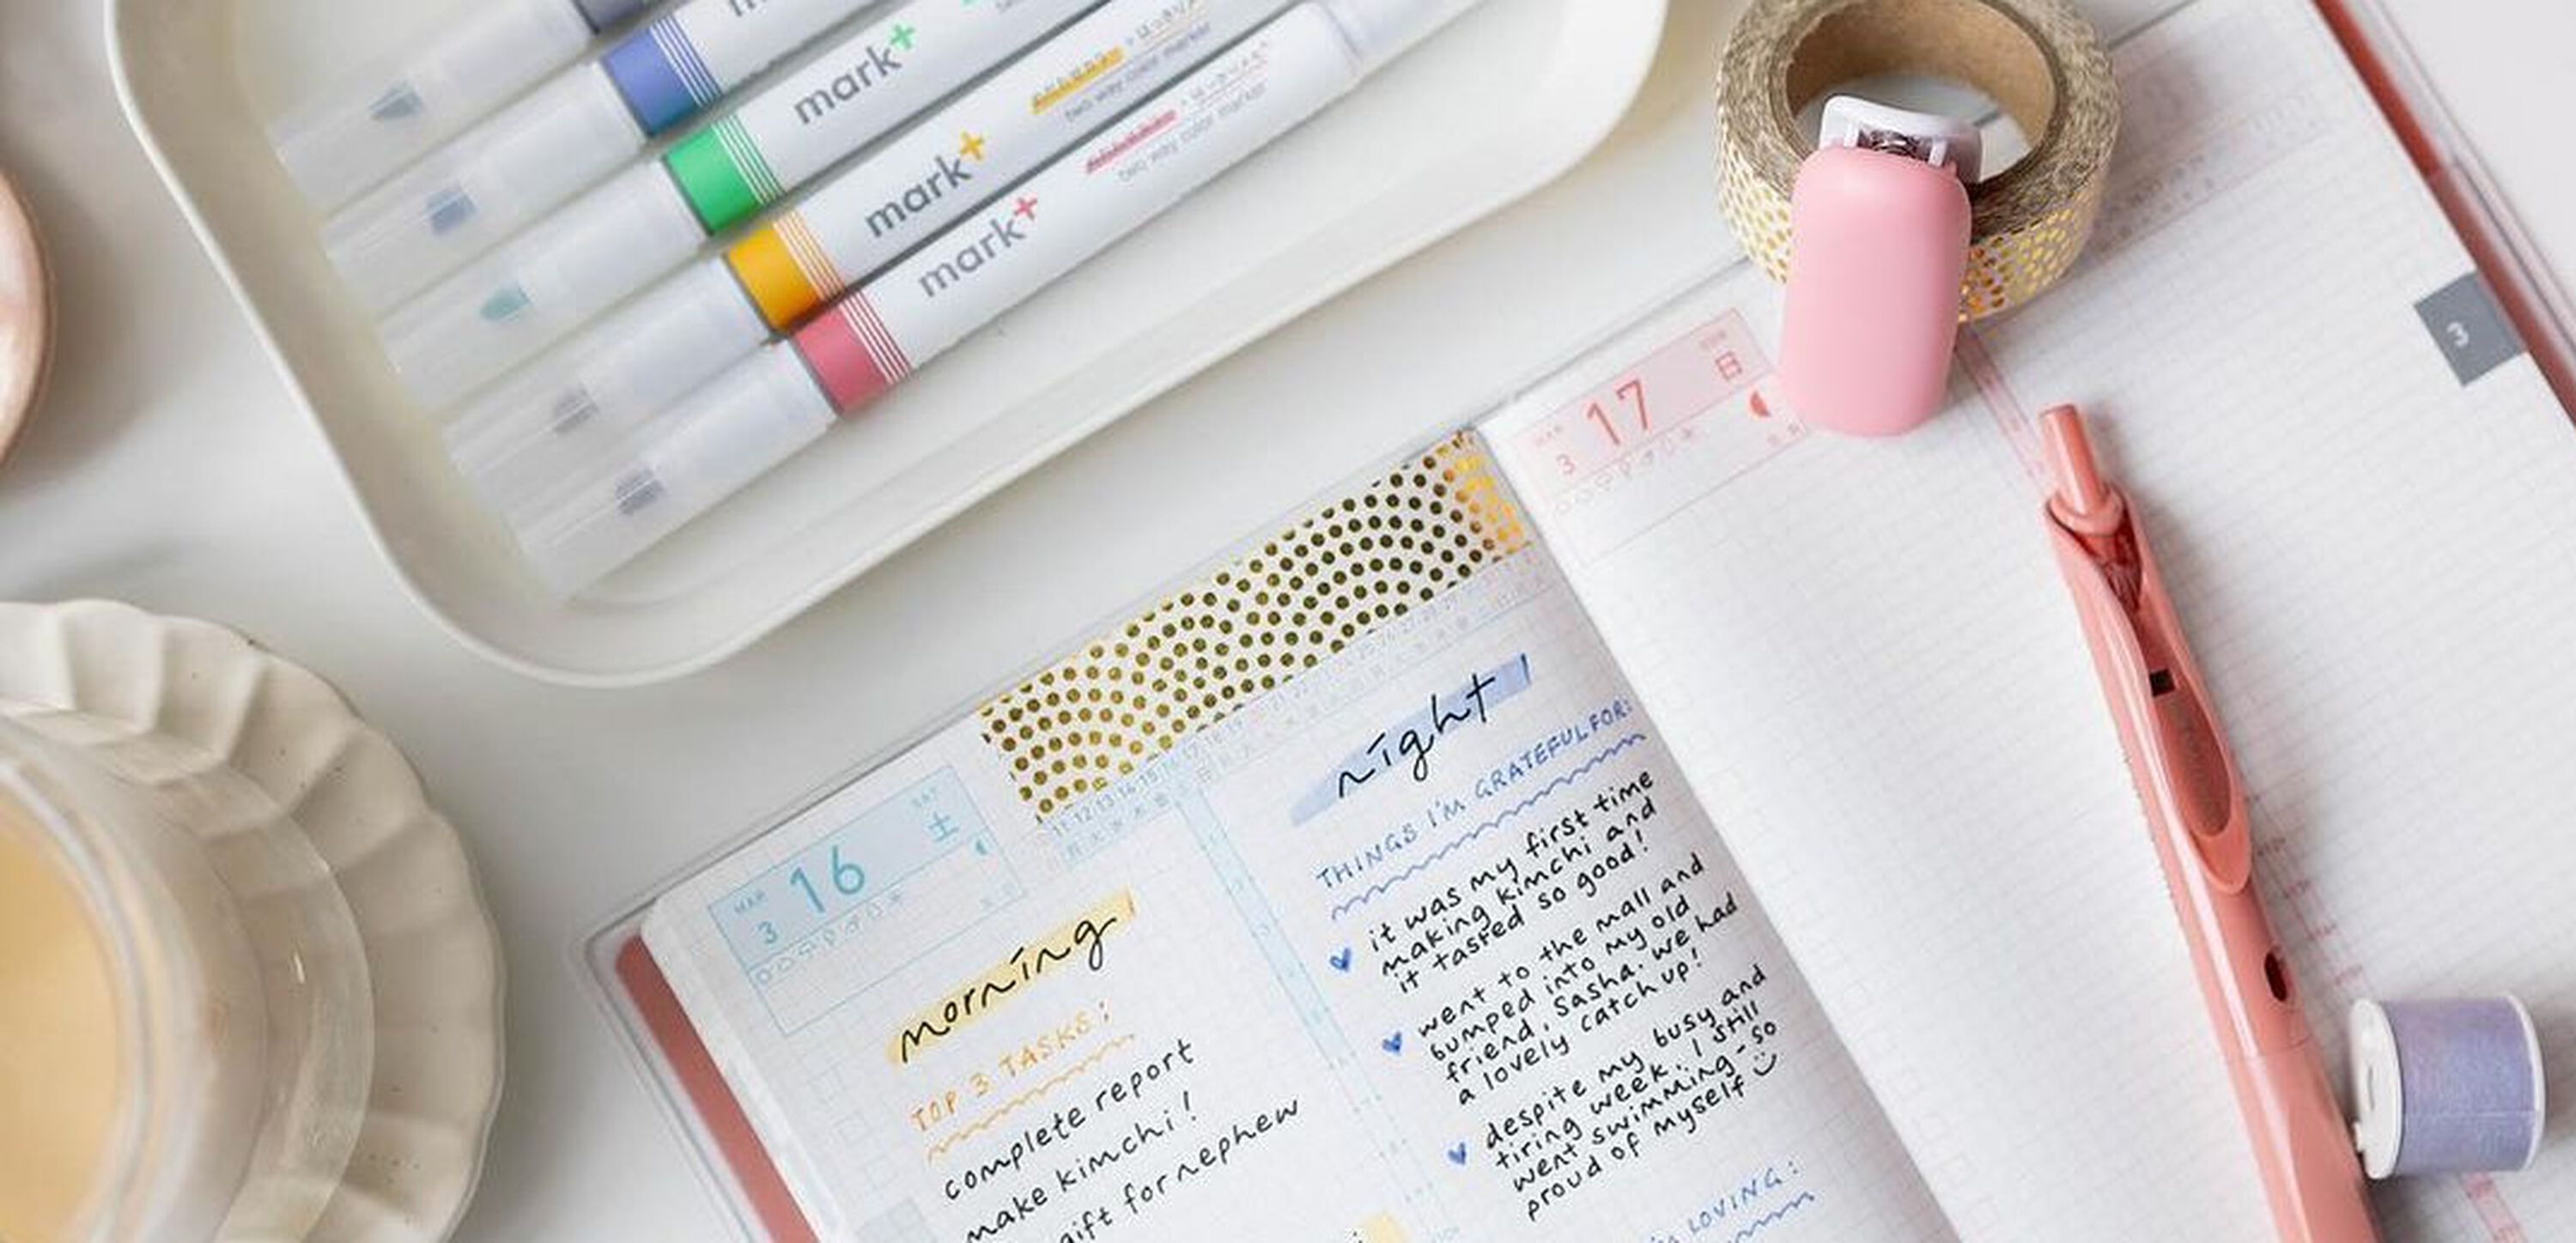 mark+
mark+
two way color marker
mark+
two way color marker
MAR
3
16
SAT
土
11 12 13 14 15 16 17 18 19
morning
TOP 3 TASKS:
complete report
make kimchi!
gift for nephew
night
THINGS I'M GRATEFUL FOR:
it was my first time
making kimchi and
it tasted so good!
went to the mall and
bumped into my old
friend, Sasha. we had
a lovely catch up!
despite my busy and
tiring week, I still
went swimming - so
proud of myself
LOVING:
MAR
3
17
SUN
日
3